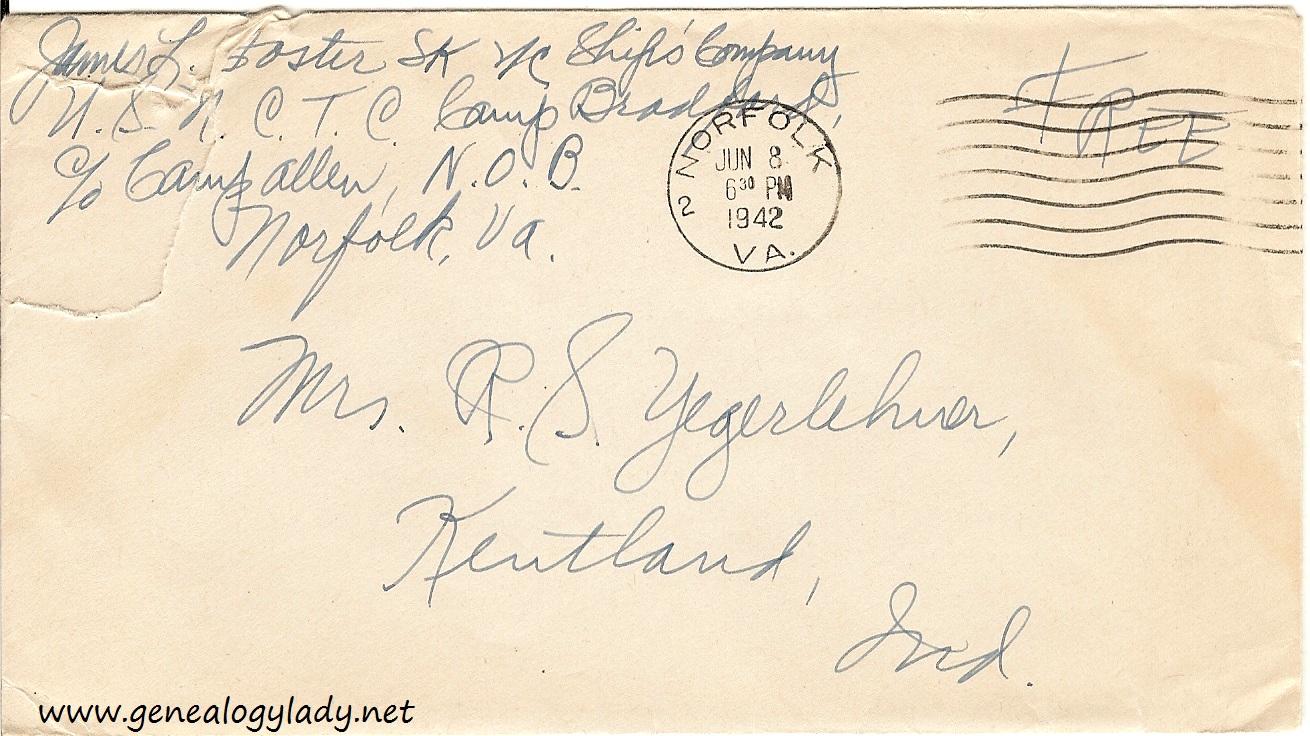 James L. Foster SK 1/c Ship's Company
U. S. N. C. T. C. Camp Bradford,
c/o Camp Allen, N. O. B.
Norfolk, Va.
FREE
2 NORFOLK VA.
JUN 8
6 30 PM
1942
Mrs. R. S. Yegerlehner,
Kentland,
Ind.
www.genealogylady.net